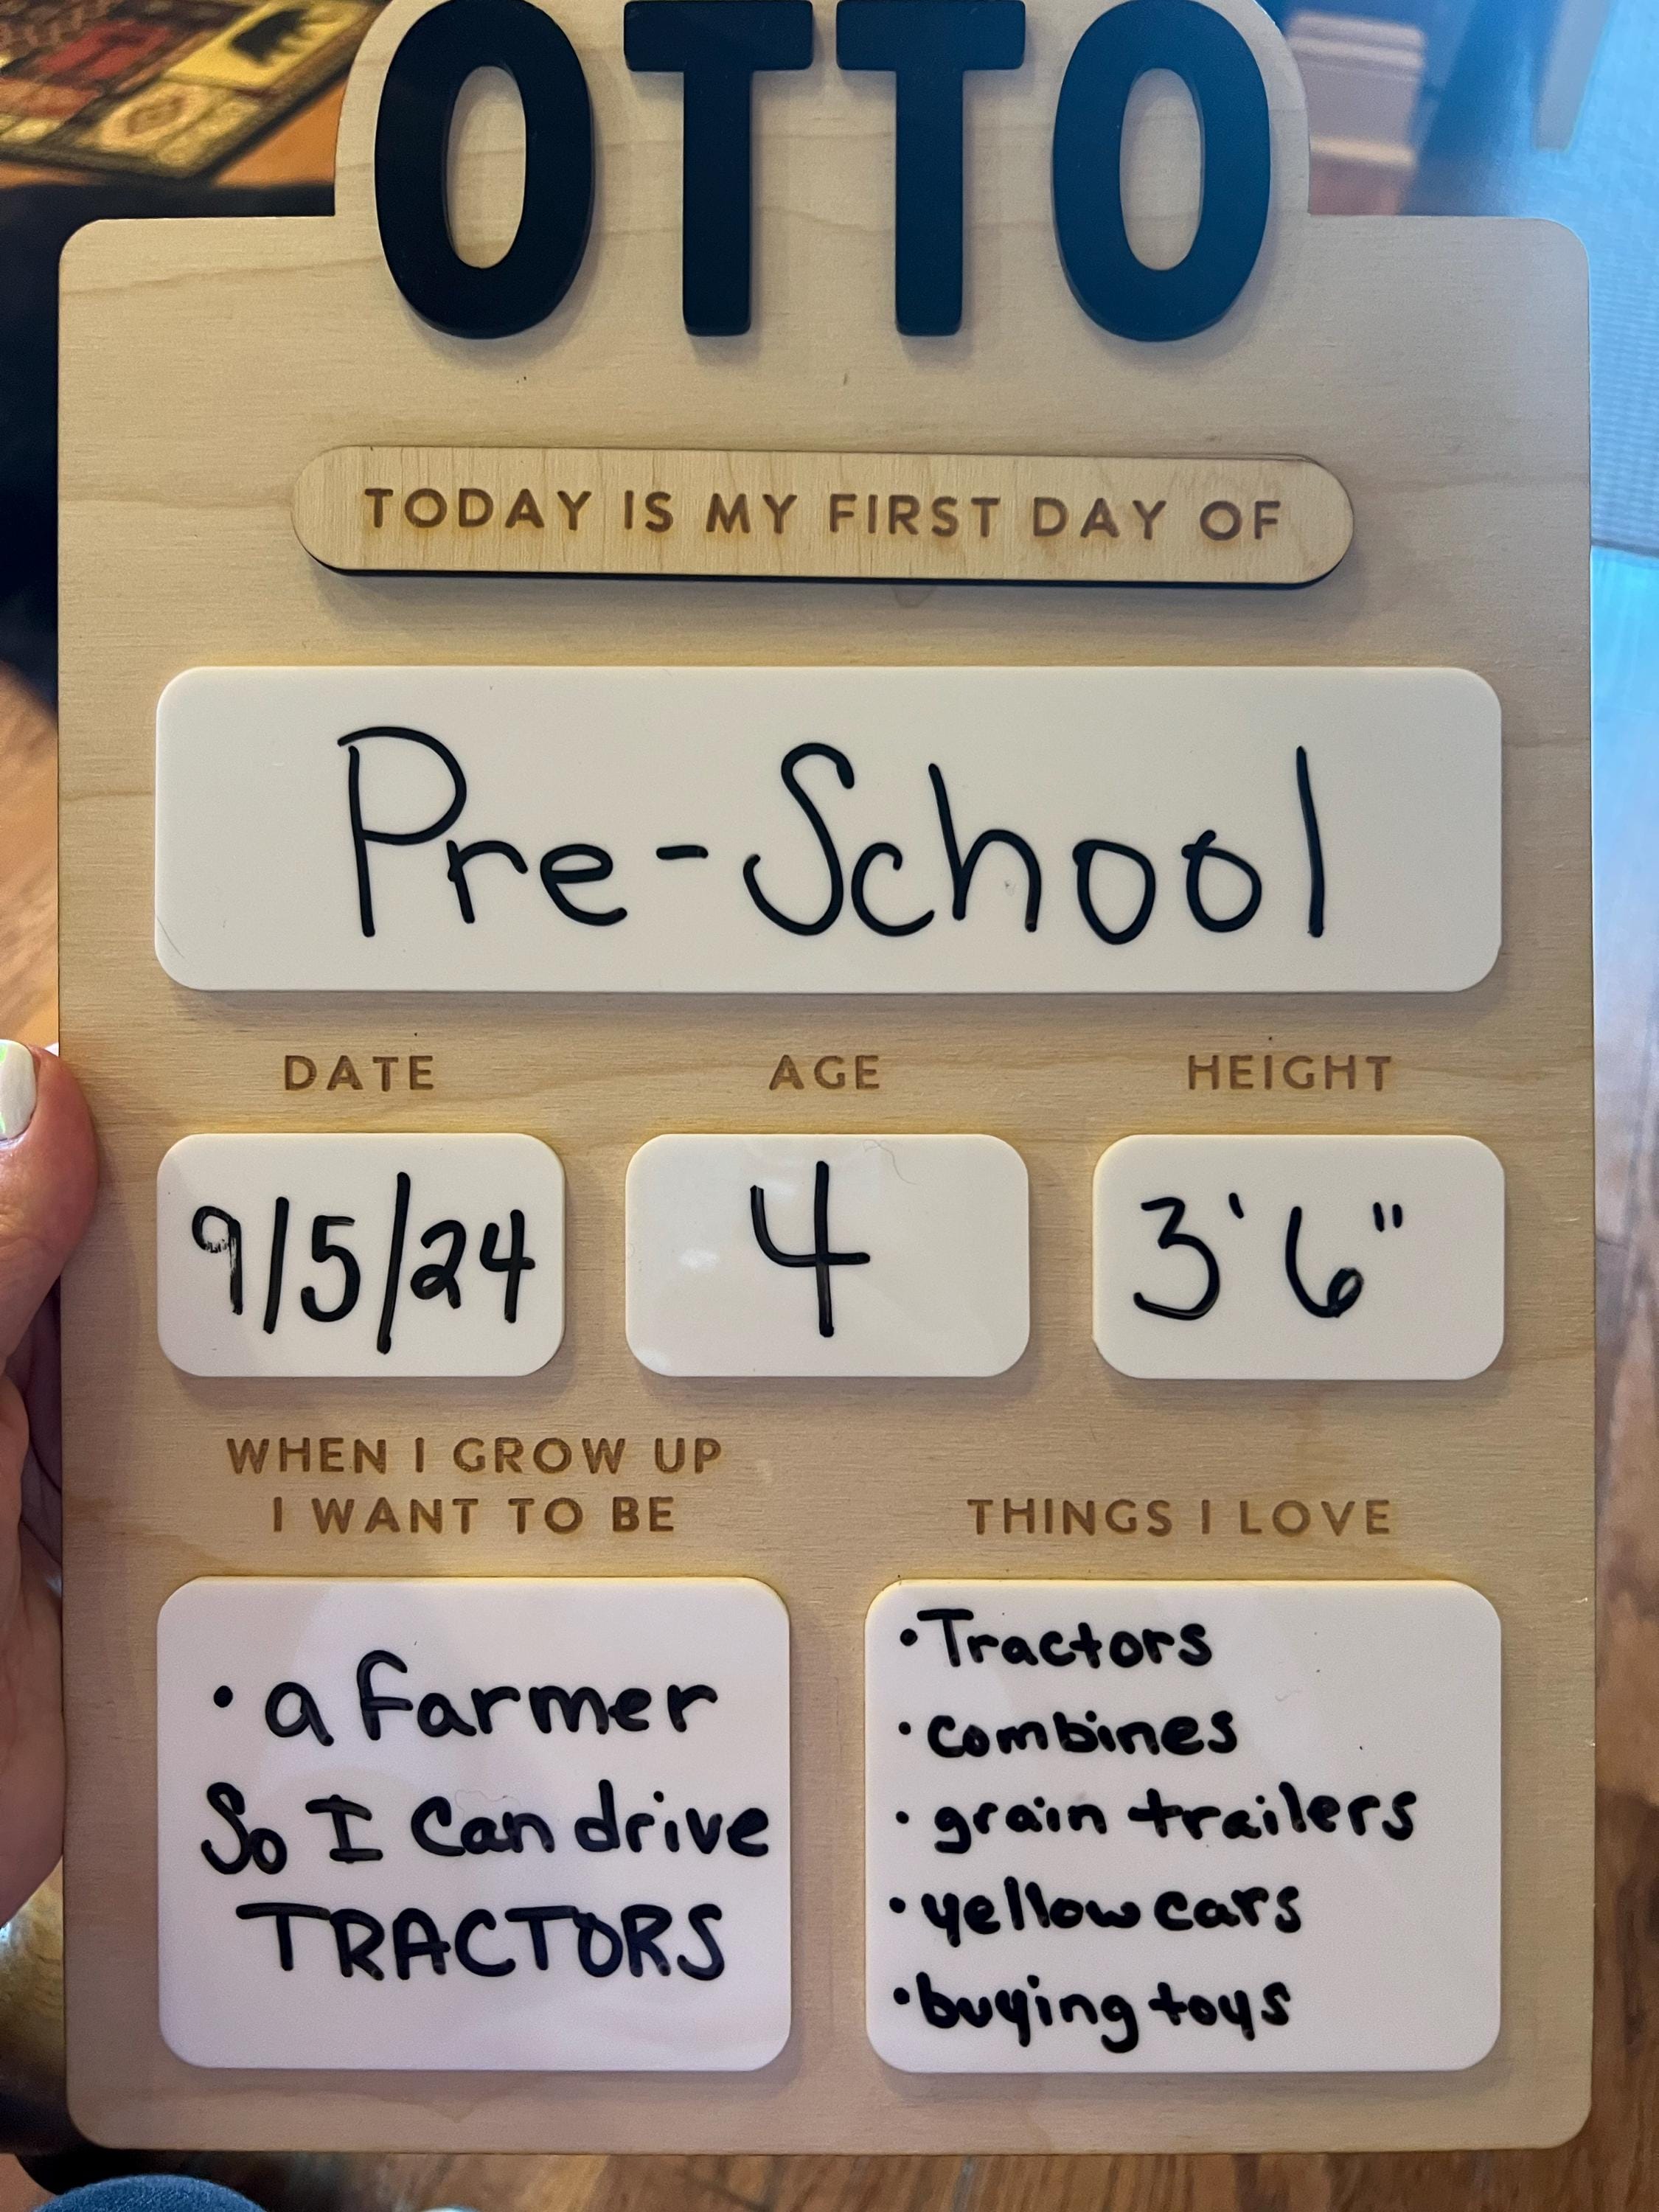 OTTO
TODAY IS MY FIRST DAY OF
Pre-School
DATE AGE HEIGHT
9/5/24 4 3'6"
WHEN I GROW UP
I WANT TO BE
• a farmer
So I Can drive
TRACTORS
THINGS I LOVE
• Tractors
• combines
• grain trailers
• yellow cars
• buying toys